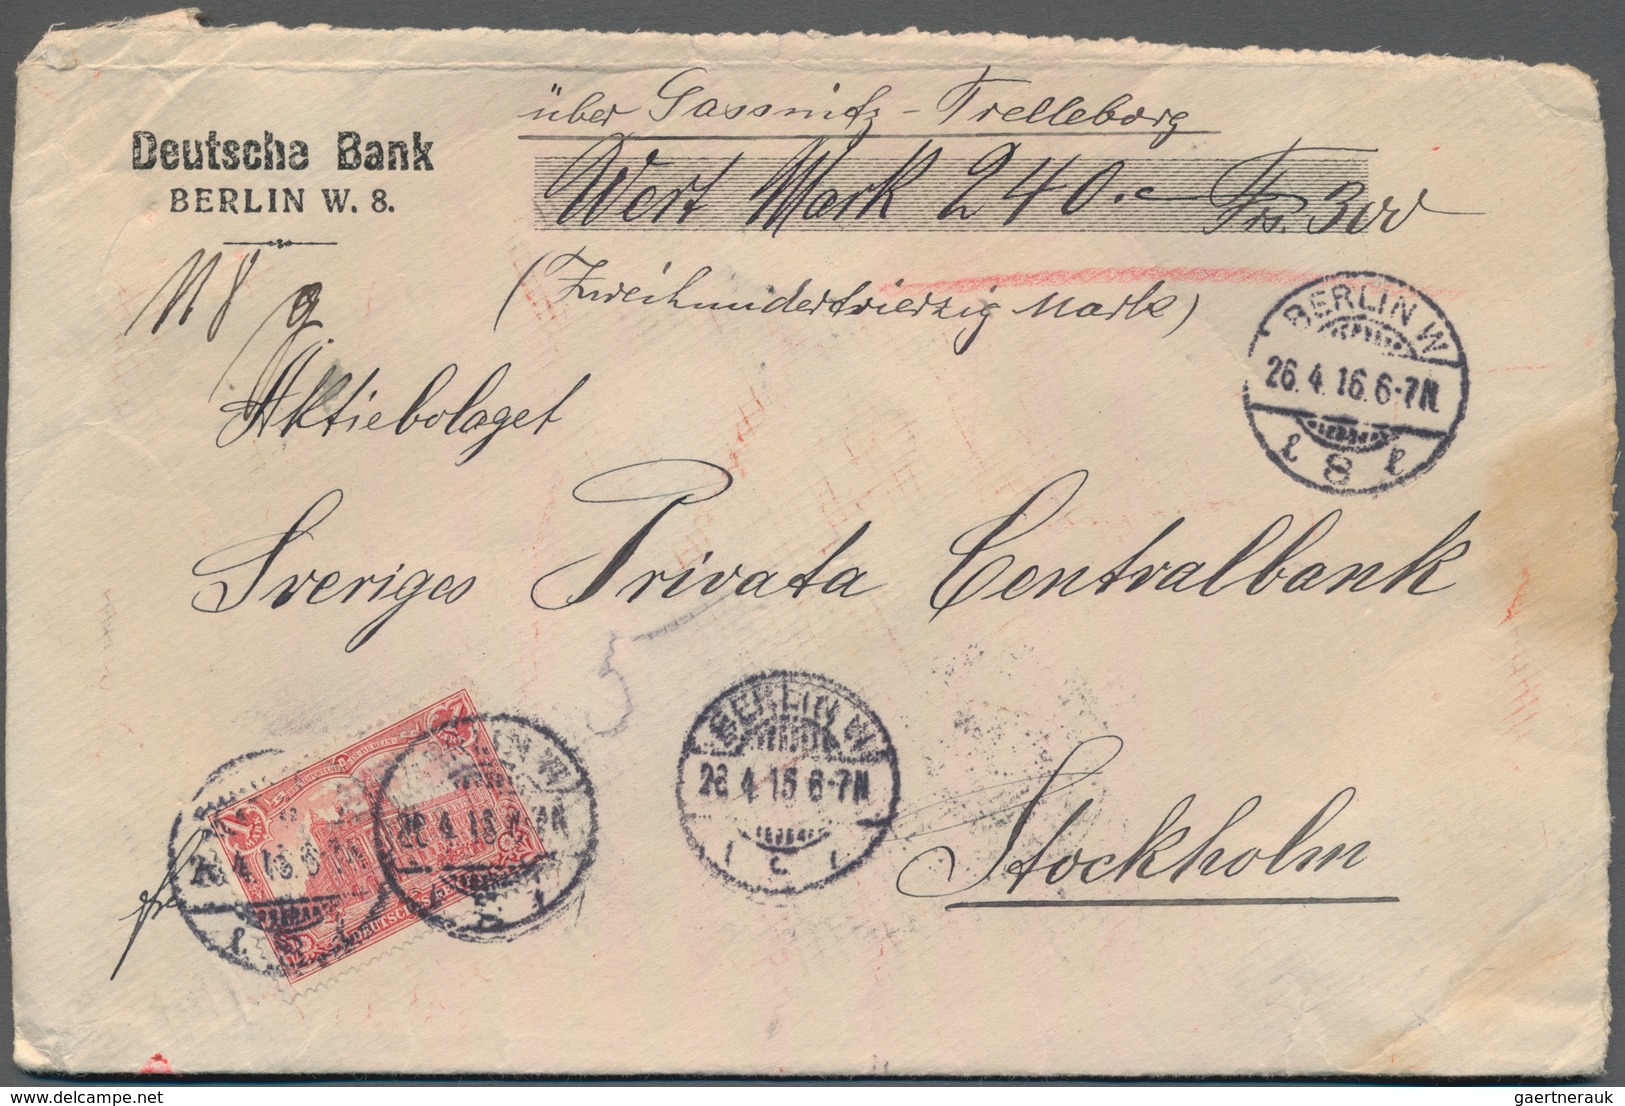 über Sassnitz - Trelleborg
Deutsche Bank
BERLIN W. 8.
Wert Mark 240.- Frs. 300
(Zweihundertvierzig Mark)
BERLIN W
26.4.16.6-7N.
8
Aktiebolaget
Sveriges Privata Centralbank
BERLIN W
26.4.16 6-7N
Stockholm
gaertnerauk